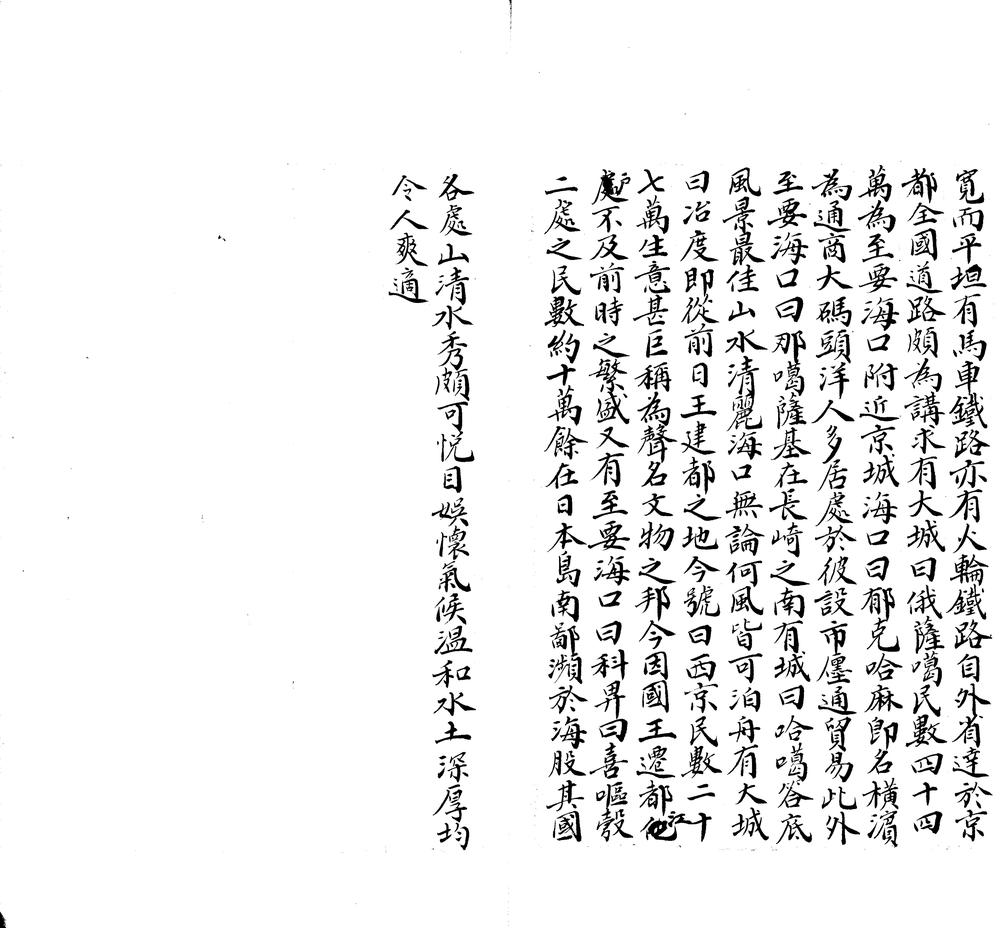 寬而平坦有馬車鐵路亦有火輪鐵路自外省達於京
都全國道路頗為講求有大城曰俄薩噶民數四十四
萬為至要海口附近京城海口曰郁克哈麻即名橫濱
為通商大碼頭洋人多居處於彼設市廛通貿易此外
至要海口曰那噶薩基在長崎之南有城曰哈噶答底
風景最佳山水清麗海口無論何風皆可泊舟有大城
曰冶度即從前日王建都之地今號曰西京民數二十
七萬生意甚巨稱為聲名文物之邦今因國王遷都江
戶不及前時之繁盛又有至要海口曰科畀曰喜嘔彀
二處之民數約十萬餘在日本島南鄙瀕於海股其國
各處山清水秀頗可悅目娛懷氣候溫和水土深厚均
令人爽適